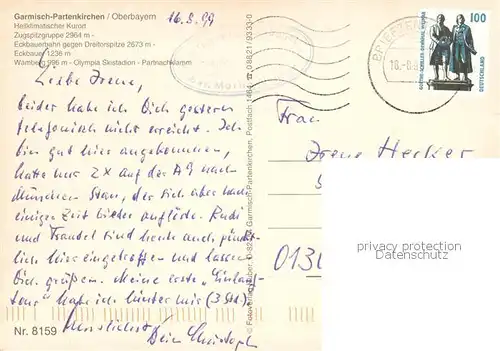 Garmisch-Partenkirchen / Oberbayern
Heilklimatischer Kurort
Zugspitzgruppe 2964 m -
Eckbauernbahn gegen Dreitorspitze 2673 m -
Eckbauer 1236 m
Wamberg 996 m - Olympia Skistadion - Partnachklamm
16.8.99
Liebe Irene,
leider habe ich Dich gestern
telefonisch nicht erreicht. Ich
bin gut hier angekommen,
hatte nur 2x auf der A9 nach
München Stau, der sich aber nach
einiger Zeit wieder auflöste. Rudi
und Traudel sind heute auch pünkt-
lich hier eingetroffen und lassen
Dich grüßen. Meine erste „Einlauf-
tour" habe ich hinter mir (3 Std.).
Herzlichst
Dein Christoph
Nr. 8159
Garmisch-Partenkirchen, Postfach 1464
08821/9333-0
BRIEFZEN
16.-8.
100
DEUTSCHLAND
GOETHE-SCHILLER-DENKMAL WEIMAR
Frau
Irene Hecker
013
privacy protection
Datenschutz